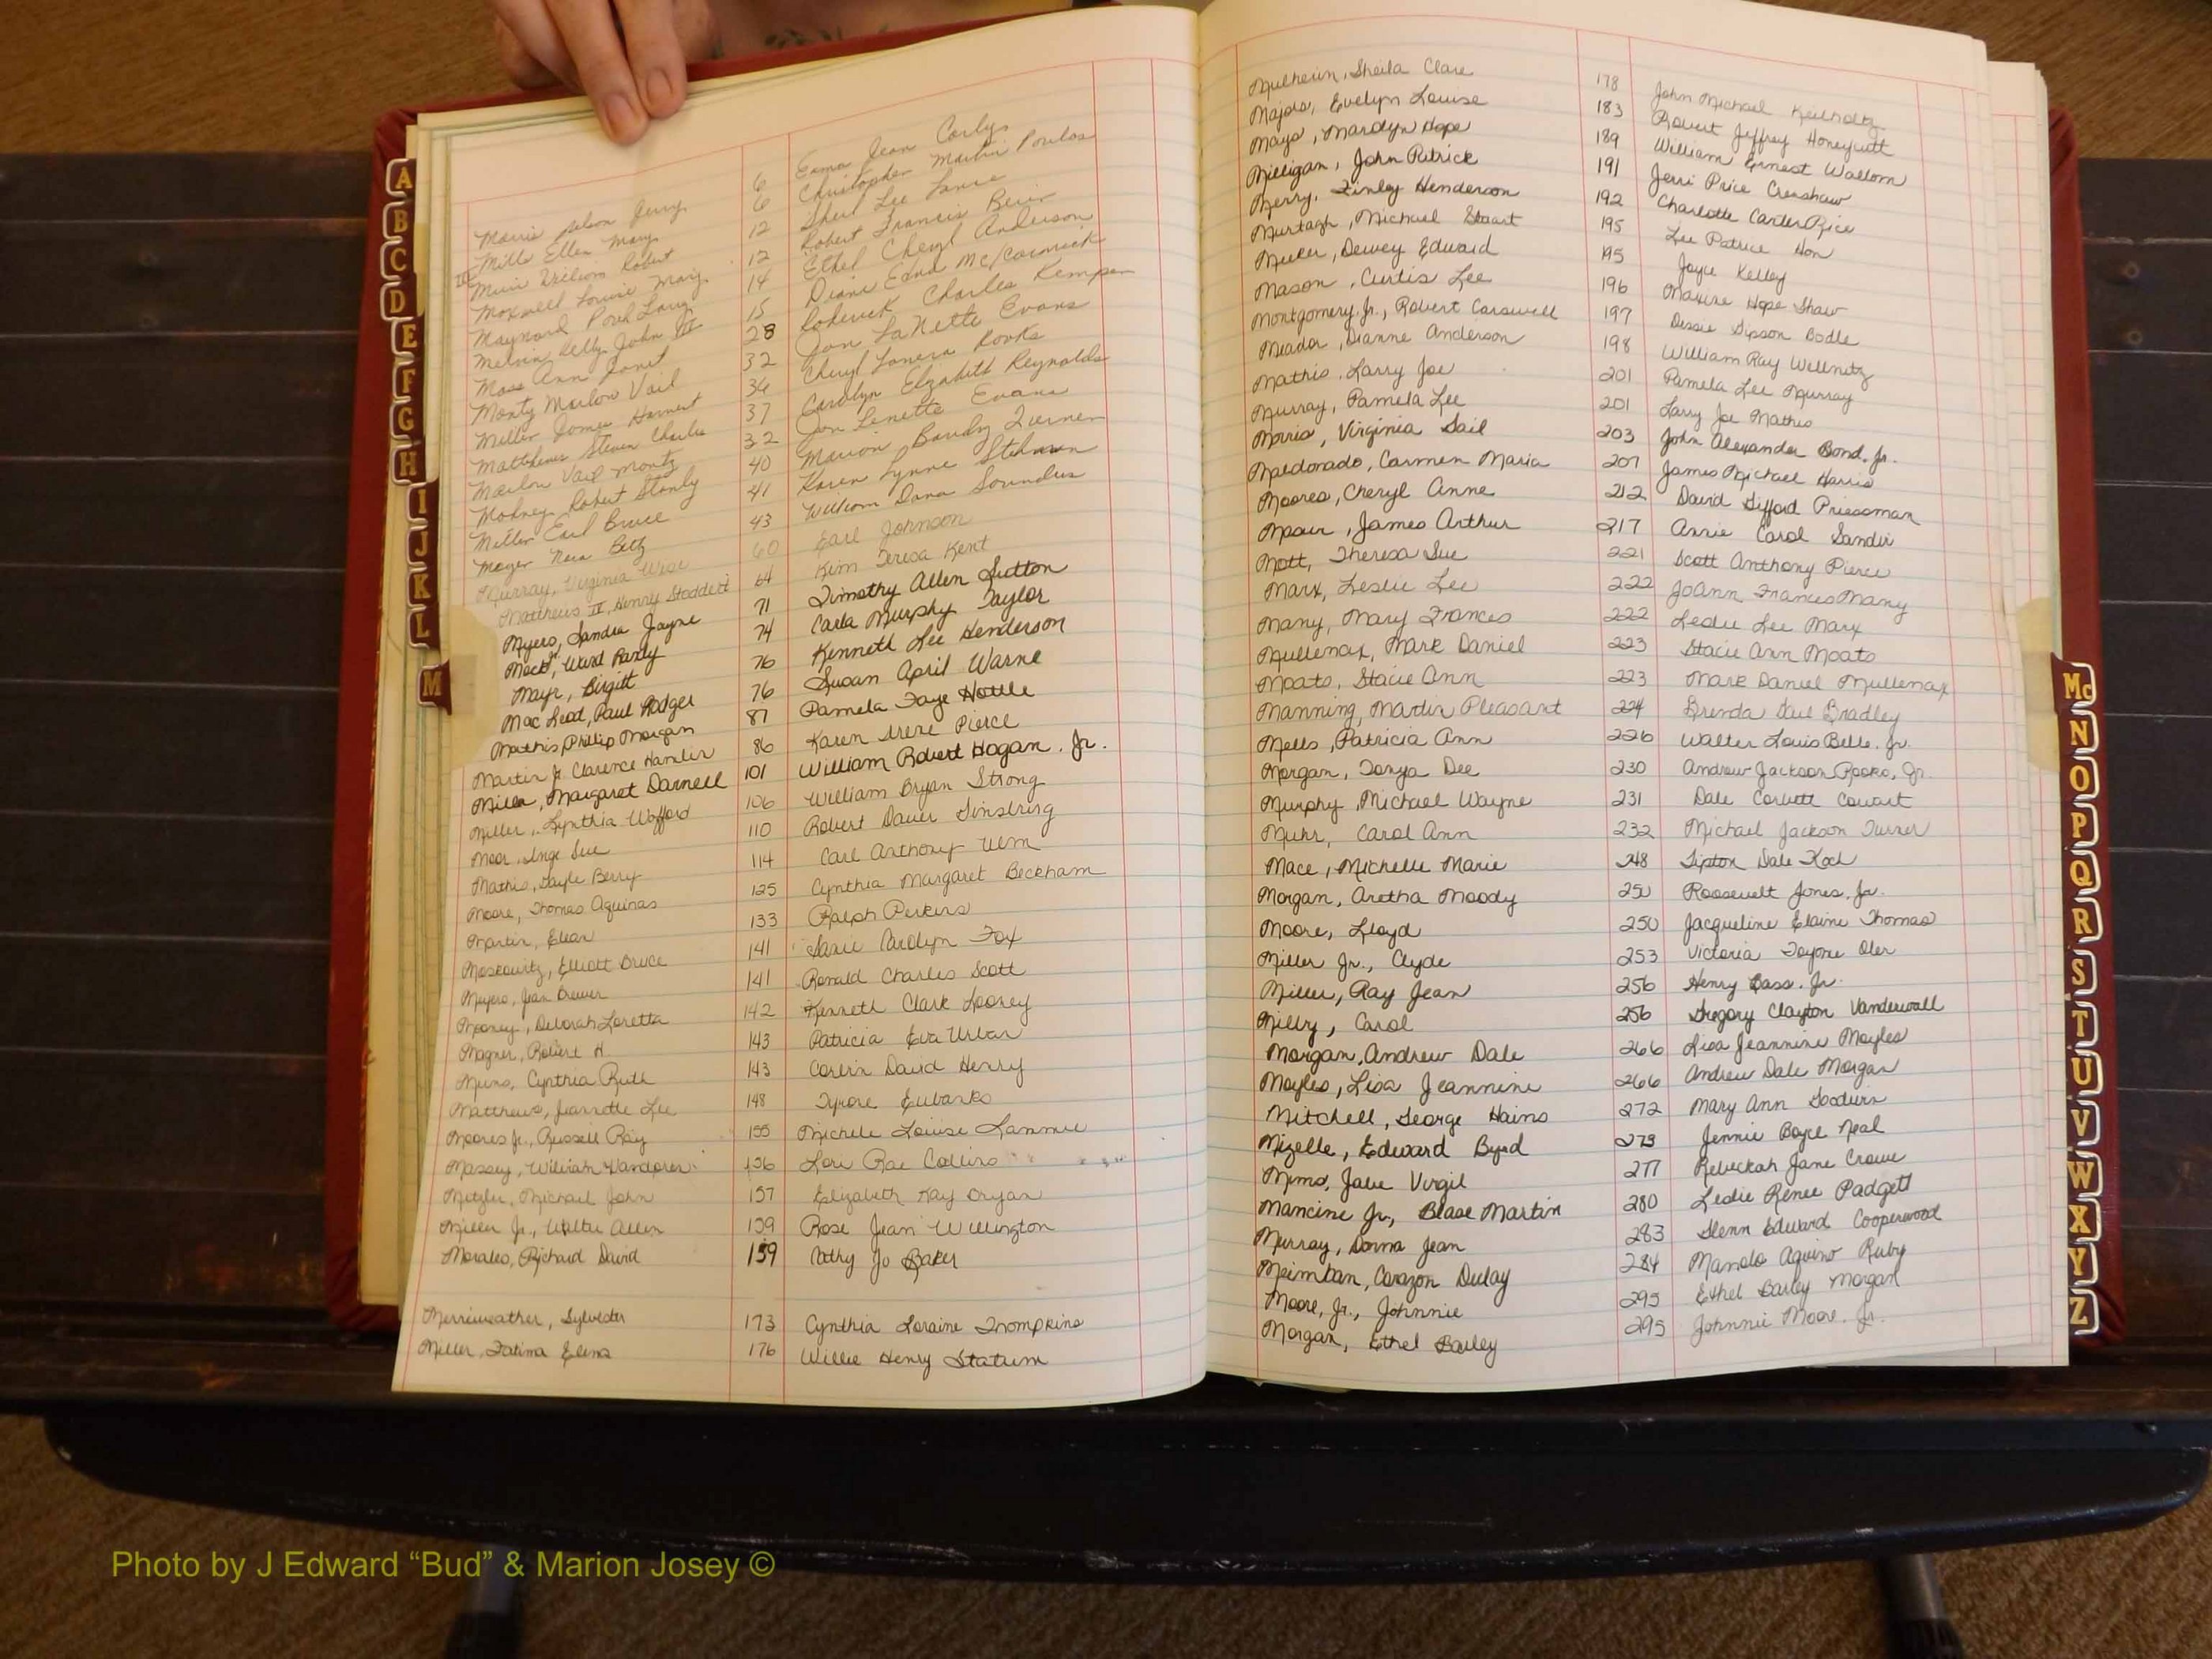 Morris Nelson Jerry 6 Erma Jean Corly
Mills Ellen Mary 6 Christopher Martin Poulos
Muir Wilson Robert III 12 Sheri Lee Lance
Maxwell Louise Mary 12 Robert Francis Beier
Maynard Larry 14 Ethel Cheryl Anderson
Melvin Kelly John III 15 Diane Edna McCormick
Moss Ann Janet 28 Roderick Charles Kemper
Monty Marlow Vail 32 Jon LaNette Evans
Miller James Harvert 34 Cheryl Rooks
Matthews Steven Charles 37 Carolyn Elizabeth Reynolds
Marlow Vail Montz 32 Jon Lenette Evans
Mohney Robert Stanly 40 Marion Turner
Miller Earl Bruce 41 Karen Lynne Stehman
Mager Neva Betz 43 William Dana Saunders
Murray, Virginia Wise 60 Earl Johnson
Matthews IV, Henry Stoddert 64 Kim Teresa Kent
Myers, Sandra Jayne 71 Timothy Allen Sutton
Mock, Ward Randy 74 Carla Murphy Taylor
Mayr, Birgitt 76 Kenneth Lee Henderson
MacLeod, Paul Rodger 76 Susan April Warne
Mathis, Phillip Morgan 87 Pamela Faye Hottle
Martin Jr. Clarence Hamlin 86 Karen Irene Pierce
Miller, Margaret Darnell 101 William Robert Hogan, Jr.
Miller, Cynthia Wofford 106 William Bryan Strong
Moor, Inge Sue 110 Robert Daver Ginsbring
Mathis, Gayle Berry 114 Carl Anthony Ulm
Moore, Thomas Aquinas 125 Cynthia Margaret Beckham
Martin, 133 Ralph Perkins
Moskowitz, Elliott Bruce 141 Janie Carolyn Fox
Meyers, Jean Brewer 141 Ronald Charles Scott
Mooney, Deborah Loretta 142 Kenneth Clark Looney
Magner, Robert H. 143 Patricia Eva Urban
Mums, Cynthia Ruth 143 Corbin David Henry
Matthews, Jeanette Lee 148 Tyrone Eubanks
Moores Jr., Russell Ray 155 Michele Louise Lammie
Massey, William Vandorer 156 Lori Rae Collins
Metzler, Michael John 157 Elizabeth Kay Bryan
Miller Jr., Walter Allen 159 Rose Jean Willington
Morales, Richard David 159 Cathy Jo Baker
Merriweather, Sylvester 173 Cynthia Loraine Thompkins
Miller, Fatima Elena 176 Willie Henry Statum
Mulherin, Sheila Clare 178 John Michael Keilholtz
Majors, Evelyn Louise 183 Robert Jeffrey Honeycutt
Mays, Marolyn Hope 189 William Ernest Wallom
Milligan, John Patrick 191 Jerri Price Crenshaw
Merry, Finley Henderson 192 Charlotte Carder Price
Murtagh, Michael Stuart 195 Lee Patrice Hon
Meeker, Dewey Edward 195 Joyce Kelley
Mason, Curtis Lee 196 Maxine Hope Shaw
Montgomery, Jr., Robert Carswell 197 Dessie Sipson Bodle
Meador, Dianne Anderson 198 William Ray Wellnitz
Mathis, Larry Joe 201 Pamela Lee Murray
Murray, Pamela Lee 201 Larry Joe Mathis
Morris, Virginia Gail 203 John Alexander Bond, Jr.
Maldorado, Carmen Maria 207 James Michael Harris
Moores, Cheryl Anne 212 David Gifford Priessman
Mpour, James Arthur 217 Annie Carol Sander
Mott, Theresa Sue 221 Scott Anthony Pierce
Marx, Leslie Lee 222 JoAnn Frances Many
Many, Mary Frances 222 Leslie Lee Marx
Mullenax, Mark Daniel 223 Stacie Ann Moats
Moats, Stacie Ann 223 Mark Daniel Mullenax
Manning, Martin Pleasant 224 Brenda Gail Bradley
Mells, Patricia Ann 226 Walter Louis Belle, Jr.
Morgan, Tonya Dee 230 Andrew Jackson Rooks, Jr.
Murphy, Michael Wayne 231 Dale Corbett Cowart
Muhr, Carol Ann 232 Michael Jackson Turner
Mace, Michelle Marie 248 Tipton Dale Koch
Morgan, Aretha Moody 250 Roosevelt Jones, Jr.
Moore, Lloyd 250 Jacqueline Elaine Thomas
Miller Jr., Clyde 253 Victoria Tayone Oler
Miller, Ray Jean 256 Henry Bass, Jr.
Milby, Carol 256 Gregory Clayton Vanderwall
Morgan, Andrew Dale 266 Lisa Jeannine Mayles
Mayles, Lisa Jeannine 266 Andrew Dale Morgan
Mitchell, George Hains 272 Mary Ann Goodwin
Mizelle, Edward Byrd 273 Jennie Boyce Neal
Mims, Jake Virgil 277 Rebeckah Jane Crowe
Mancine Jr., Blase Martin 280 Leslie Renee Padgett
Murray, Donna Jean 283 Glenn Edward Cooperwood
Meimban, Corazon Dulay 284 Manolo Aquino Ruby
Moore, Jr., Johnnie 295 Ethel Bailey Morgan
Morgan, Ethel Bailey 295 Johnnie Moore, Jr.
A
B
C
D
E
F
G
H
I
J
K
L
M
Mc
N
O
P
Q
R
S
T
U
V
W
X
Y
Z
Photo by J Edward “Bud” & Marion Josey ©